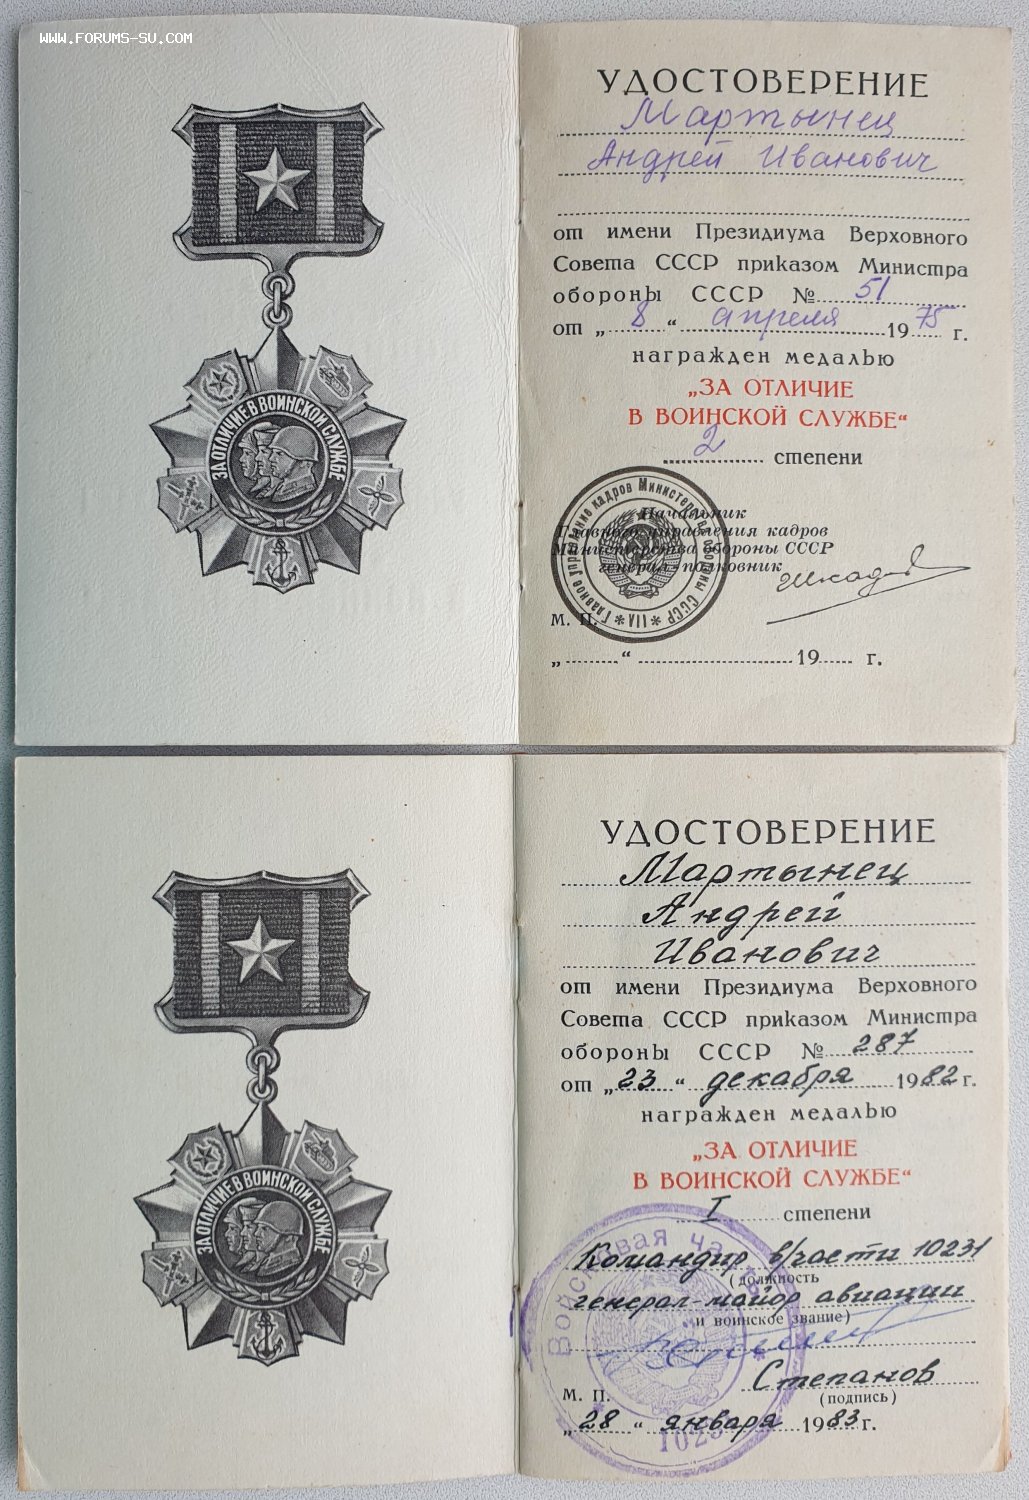 WWW.FORUMS-SU.COM
ЗА ОТЛИЧИЕ В ВОИНСКОЙ СЛУЖБЕ
УДОСТОВЕРЕНИЕ
Мартынец
Андрей Иванович
от имени Президиума Верховного
Совета СССР приказом Министра
обороны СССР № 51
от „ 8 “ апреля 1975 г.
награжден медалью
„ЗА ОТЛИЧИЕ
В ВОИНСКОЙ СЛУЖБЕ“
2 степени
Начальник
Главного управления кадров
Министерства обороны СССР
генерал-полковник
Главное Управление кадров Министерства обороны СССР * VII *
М. П.
„ “ 19 г.
ЗА ОТЛИЧИЕ В ВОИНСКОЙ СЛУЖБЕ
УДОСТОВЕРЕНИЕ
Мартынец
Андрей
Иванович
от имени Президиума Верховного
Совета СССР приказом Министра
обороны СССР № 287
от „23 “ декабря 1982 г.
награжден медалью
„ЗА ОТЛИЧИЕ
В ВОИНСКОЙ СЛУЖБЕ“
I степени
Войсковая часть
Командир в/части 10231
(должность
генерал-майор авиации
и воинское звание)
Степанов
М. П.
(подпись)
„28 “ января 1983 г.